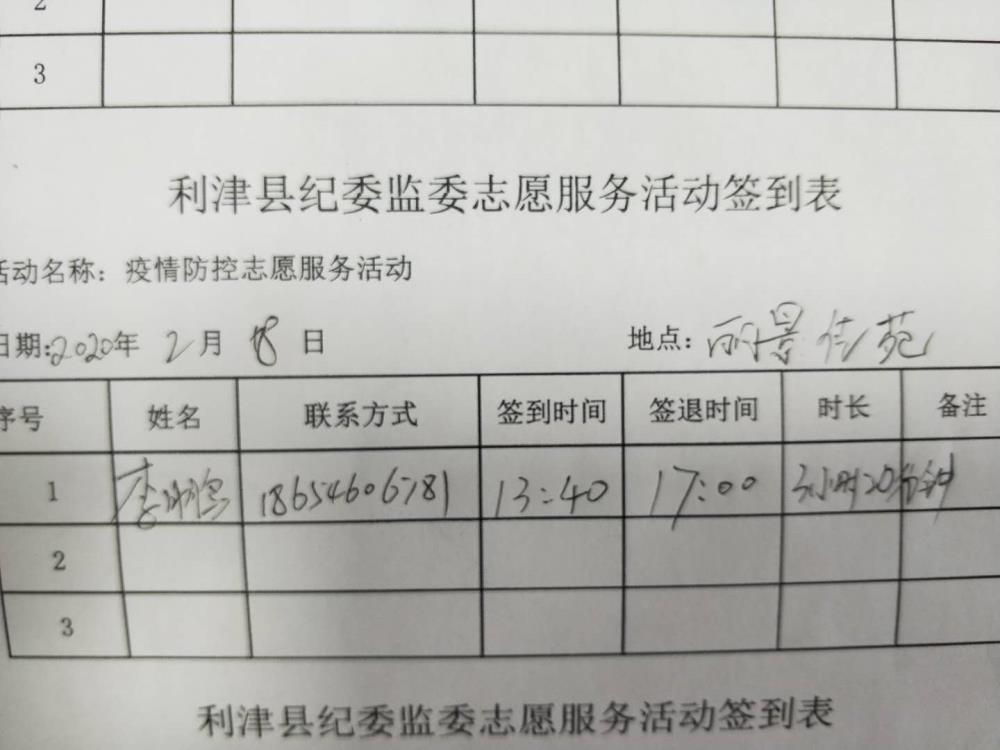 2
3
利津县纪委监委志愿服务活动签到表
活动名称：疫情防控志愿服务活动
日期:2020年 2月 18日 地点：丽景佳苑
序号 姓名 联系方式 签到时间 签退时间 时长 备注
1 李鹏 18654606781 13:40 17:00 3小时20分钟
2
3
利津县纪委监委志愿服务活动签到表